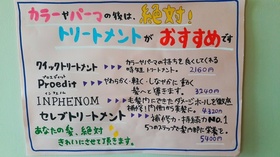 カラーやパーマの後は、絶対!
トリートメントが おすすめです
クイックトリートメント → カラーやパーマの持ちを良くしてくれる
時短トリートメント。 2160円
プロエディット
Proedit → やわらかく、軽く、しなやかに動く
髪へと導きます。 3240円
インフェノム
INPHENOM → 毛髪内にできたダメージホールを徹底
補修!! 内側から美髪に。 4320円
セレブトリートメント → 補修力・持続力NO.1
あなたの髪、絶対 5つのステップで髪の芯に栄養を。
きれいにさせて頂きます。 5400円